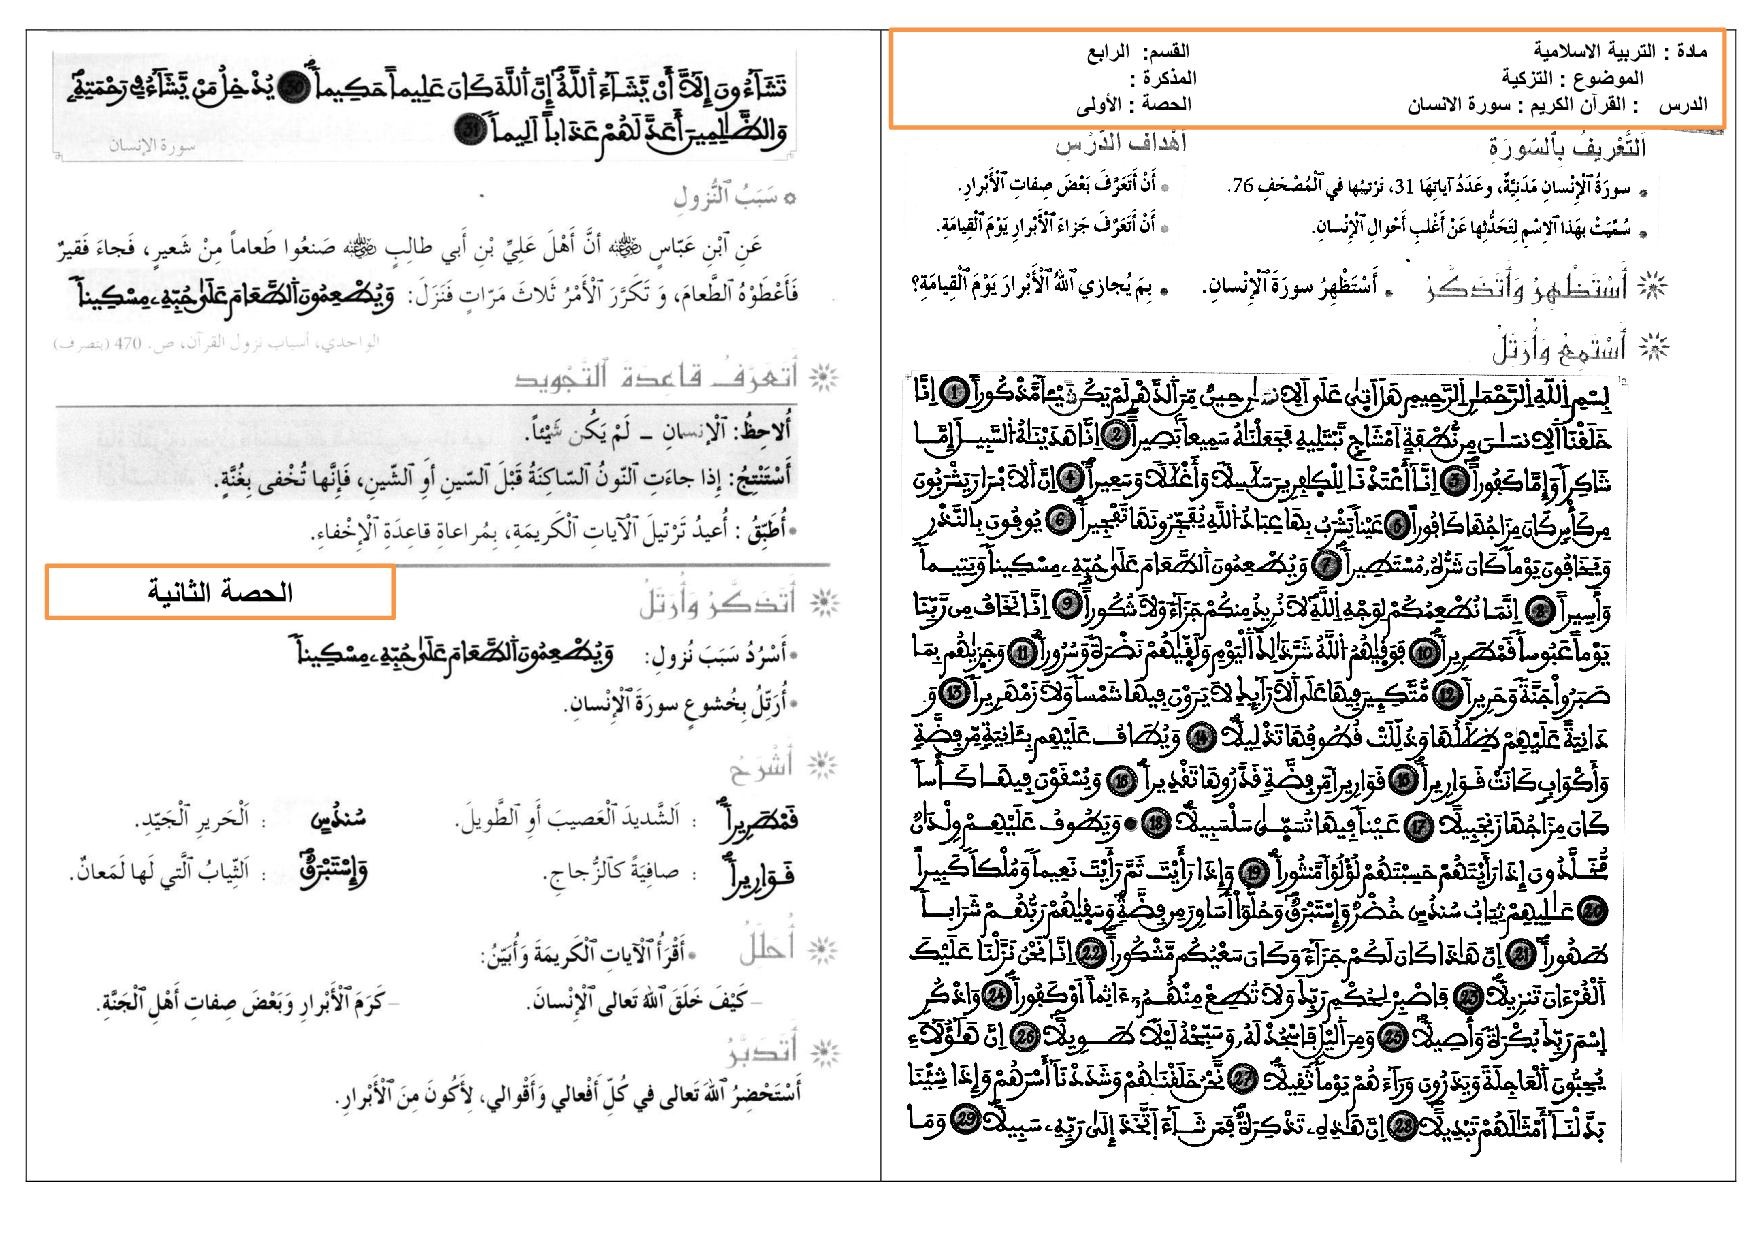 مادة : التربية الاسلامية القسم: الرابع
الموضوع : التزكية المذكرة :
الدرس : القرآن الكريم : سورة الانسان الحصة : الأولى
اَلتَّعْريفُ بِالسّورَةِ أَهْدافُ الدَّرْسِ
• سورَةُ الْإِنْسانِ مَدَنِيَّةٌ، وعَدَدُ آياتِها 31، تَرْتيبُها في الْمُصْحَفِ 76. • أَنْ أَتَعَرَّفَ بَعْضَ صِفاتِ الْأَبْرارِ.
• سُمِّيَتْ بِهَذا الِاسْمِ لِتَحَدُّثِها عَنْ أَغْلَبِ أَحْوالِ الْإِنْسانِ. • أَنْ أَتَعَرَّفَ جَزاءَ الْأَبْرارِ يَوْمَ الْقِيامَةِ.
أَسْتَظْهِرُ وَأَتَذَكَّرُ • أَسْتَظْهِرُ سورَةَ الْإِنْسانِ. • بِمَ يُجازي اللهُ الْأَبْرارَ يَوْمَ الْقِيامَةِ؟
أَسْتَمِعُ وَأُرَتِّلُ
بِسْمِ اِللَّهِ اِلرَّحْمَٰنِ اِلرَّحِيمِ هَلَ اَتٜيٰ عَلَي اَلِانسَٰنِ حِينٌ مِّنَ اَلدَّهْرِ لَمْ يَكُن شَيْـٔاً مَّذْكُوراًۖ 1 اِنَّا
خَلَقْنَا اَلِانسَٰنَ مِن نُّطْفَةٍ اَمْشَاجٖ نَّبْتَلِيهِ فَجَعَلْنَٰهُ سَمِيعاَۢ بَصِيراًۖ 2 اِنَّا هَدَيْنَٰهُ اُلسَّبِيلَ إِمَّا
شَاكِراٗ وَإِمَّا كَفُوراًۖ 3 اِنَّآ أَعْتَدْنَا لِلْكٰ۪فِرِينَ سَلَٰسِلاٗ وَأَغْلَٰلاٗ وَسَعِيراًۖ 4 اِنَّ اَلَابْرَارَ يَشْرَبُونَ
مِن كَأْسٖ كَانَ مِزَاجُهَا كَافُوراً 5 عَيْناٗ يَشْرَبُ بِهَا عِبَادُ اُللَّهِ يُفَجِّرُونَهَا تَفْجِيراًۖ 6 يُوفُونَ بِالنَّذْرِ
وَيَخَافُونَ يَوْماٗ كَانَ شَرُّهُۥ مُسْتَطِيراًۖ 7 وَيُطْعِمُونَ اَلطَّعَامَ عَلَيٰ حُبِّهِۦ مِسْكِيناٗ وَيَتِيماٗ
وَأَسِيراًۖ 8 اِنَّمَا نُطْعِمُكُمْ لِوَجْهِ اِللَّهِ لَا نُرِيدُ مِنكُمْ جَزَآءٗ وَلَا شُكُوراًۖ 9 اِنَّا نَخَافُ مِن رَّبِّنَا
يَوْماً عَبُوساٗ قَمْطَرِيراٗۖ 10 فَوَقٜيٰهُمُ اُللَّهُ شَرَّ ذَٰلِكَ اَلْيَوْمِ وَلَقّٜيٰهُمْ نَضْرَةٗ وَسُرُوراٗۖ 11 وَجَزٜيٰهُم بِمَا
صَبَرُواْ جَنَّةٗ وَحَرِيراٗ 12 مُّتَّكِـِٔينَ فِيهَا عَلَي اَلَارَآئِكِ لَا يَرَوْنَ فِيهَا شَمْساٗ وَلَا زَمْهَرِيراٗۖ 13 وَ
دَانِيَةً عَلَيْهِمْ ظِلَٰلُهَا وَذُلِّلَتْ قُطُوفُهَا تَذْلِيلاٗۖ 14 وَيُطَافُ عَلَيْهِم بِـَٔانِيَةٖ مِّن فِضَّةٖ
وَأَكْوَابٖ كَانَتْ قَوَارِيراٗۖ 15 قَوَارِيراٗ مِّن فِضَّةٖ قَدَّرُوهَا تَقْدِيراٗۖ 16 وَيُسْقَوْنَ فِيهَا كَأْساٗ
كَانَ مِزَاجُهَا زَنجَبِيلاً 17 عَيْناٗ فِيهَا تُسَمّٜيٰ سَلْسَبِيلاٗۖ 18 • وَيَطُوفُ عَلَيْهِمْ وِلْدَٰنٞ
مُّخَلَّدُونَ إِذَا رَأَيْتَهُمْ حَسِبْتَهُمْ لُؤْلُؤاٗ مَّنثُوراٗۖ 19 وَإِذَا رَأَيْتَ ثَمَّ رَأَيْتَ نَعِيماٗ وَمُلْكاٗ كَبِيراًۖ
20 عَٰلِيهِمْ ثِيَابُ سُندُسٍ خُضْرٞ وَإِسْتَبْرَقٞ وَحُلُّوٓاْ أَسَاوِرَ مِن فِضَّةٖ وَسَقٜيٰهُمْ رَبُّهُمْ شَرَاباٗ
طَهُوراًۖ 21 اِنَّ هَٰذَا كَانَ لَكُمْ جَزَآءٗ وَكَانَ سَعْيُكُم مَّشْكُوراًۖ 22 اِنَّا نَحْنُ نَزَّلْنَا عَلَيْكَ
اَلْقُرْءَانَ تَنزِيلاٗۖ 23 فَاصْبِرْ لِحُكْمِ رَبِّكَ وَلَا تُطِعْ مِنْهُمُۥٓ ءَاثِماً اَوْ كَفُوراٗۖ 24 وَاذْكُرِ
اِسْمَ رَبِّكَ بُكْرَةٗ وَأَصِيلاٗۖ 25 وَمِنَ اَليْلِ فَاسْجُدْ لَهُۥ وَسَبِّحْهُ لَيْلاٗ طَوِيلاًۖ 26 اِنَّ هَٰٓؤُلَآءِ
يُحِبُّونَ اَلْعَاجِلَةَ وَيَذَرُونَ وَرَآءَهُمْ يَوْماٗ ثَقِيلاٗۖ 27 نَّحْنُ خَلَقْنَٰهُمْ وَشَدَدْنَآ أَسْرَهُمْ وَإِذَا شِئْنَا
بَدَّلْنَآ أَمْثَٰلَهُمْ تَبْدِيلاًۖ 28 اِنَّ هَٰذِهِۦ تَذْكِرَةٞ فَمَن شَآءَ اَتَّخَذَ إِلَيٰ رَبِّهِۦ سَبِيلاٗۖ 29 وَمَا
تَشَآءُونَ إِلَّآ أَنْ يَّشَآءَ اَللَّهُۖ إِنَّ اَللَّهَ كَانَ عَلِيماً حَكِيماٗۖ 30 يُدْخِلُ مَنْ يَّشَآءُ فِي رَحْمَتِهِۦۖ
وَالظَّٰلِمِينَ أَعَدَّ لَهُمْ عَذَاباً اَلِيماٗۖ 31
سورة الإنسان
سَبَبُ النُّزولِ
عَنِ ابْنِ عَبّاسٍ رضي الله عنه أَنَّ أَهْلَ عَلِيِّ بْنِ أَبي طالِبٍ رضي الله عنه صَنعُوا طَعاماً مِنْ شَعيرٍ، فَجاءَ فَقيرٌ
فَأَعْطَوْهُ الطَّعامَ، وَ تَكَرَّرَ الْأَمْرُ ثَلاثَ مَرّاتٍ فَنَزَلَ: وَيُطْعِمُونَ اَلطَّعَامَ عَلَيٰ حُبِّهِۦ مِسْكِيناٗ
الواحدي، أسباب نزول القرآن، ص. 470 (بتصرف)
أَتَعَرَّفُ قاعِدَةَ التَّجْويدِ
أُلاحِظُ: الْإِنسانِ – لَمْ يَكُن شَيْئاً.
أَسْتَنْتِجُ: إِذا جاءَتِ النّونُ السّاكِنَةُ قَبْلَ السّينِ أَوِ الشّينِ، فَإِنَّها تُخْفى بِغُنَّةٍ.
• أُطَبِّقُ : أُعيدُ تَرْتيلَ الْآياتِ الْكَريمَةِ، بِمُراعاةِ قاعِدَةِ الْإِخْفاءِ.
الحصة الثانية
أَتَذَكَّرُ وَأُرَتِّلُ
• أَسْرُدُ سَبَبَ نُزولِ: وَيُطْعِمُونَ اَلطَّعَامَ عَلَيٰ حُبِّهِۦ مِسْكِيناٗ
• أُرَتِّلُ بِخُشوعٍ سورَةَ الْإِنْسانِ.
أَشْرَحُ
قَمْطَرِيراٗۖ : اَلشَّديدَ الْعَصيبَ أَوِ الطَّويلَ. سُندُسٍ : اَلْحَريرِ الْجَيِّدِ.
قَوَارِيراٗۖ : صافِيَةً كالزُّجاجِ. وَإِسْتَبْرَقٞ : اَلثِّيابُ الَّتي لَها لَمَعانٌ.
أُحَلِّلُ • أَقْرَأُ الْآياتِ الْكَريمَةَ وَأُبَيِّنُ:
– كَيْفَ خَلَقَ اللهُ تَعالى الْإِنْسانَ. – كَرَمَ الْأَبْرارِ وَبَعْضَ صِفاتِ أَهْلِ الْجَنَّةِ.
أَتَدَبَّرُ
أَسْتَحْضِرُ اللهَ تَعالى في كُلِّ أَفْعالي وَأَقْوالي، لِأَكُونَ مِنَ الْأَبْرارِ.